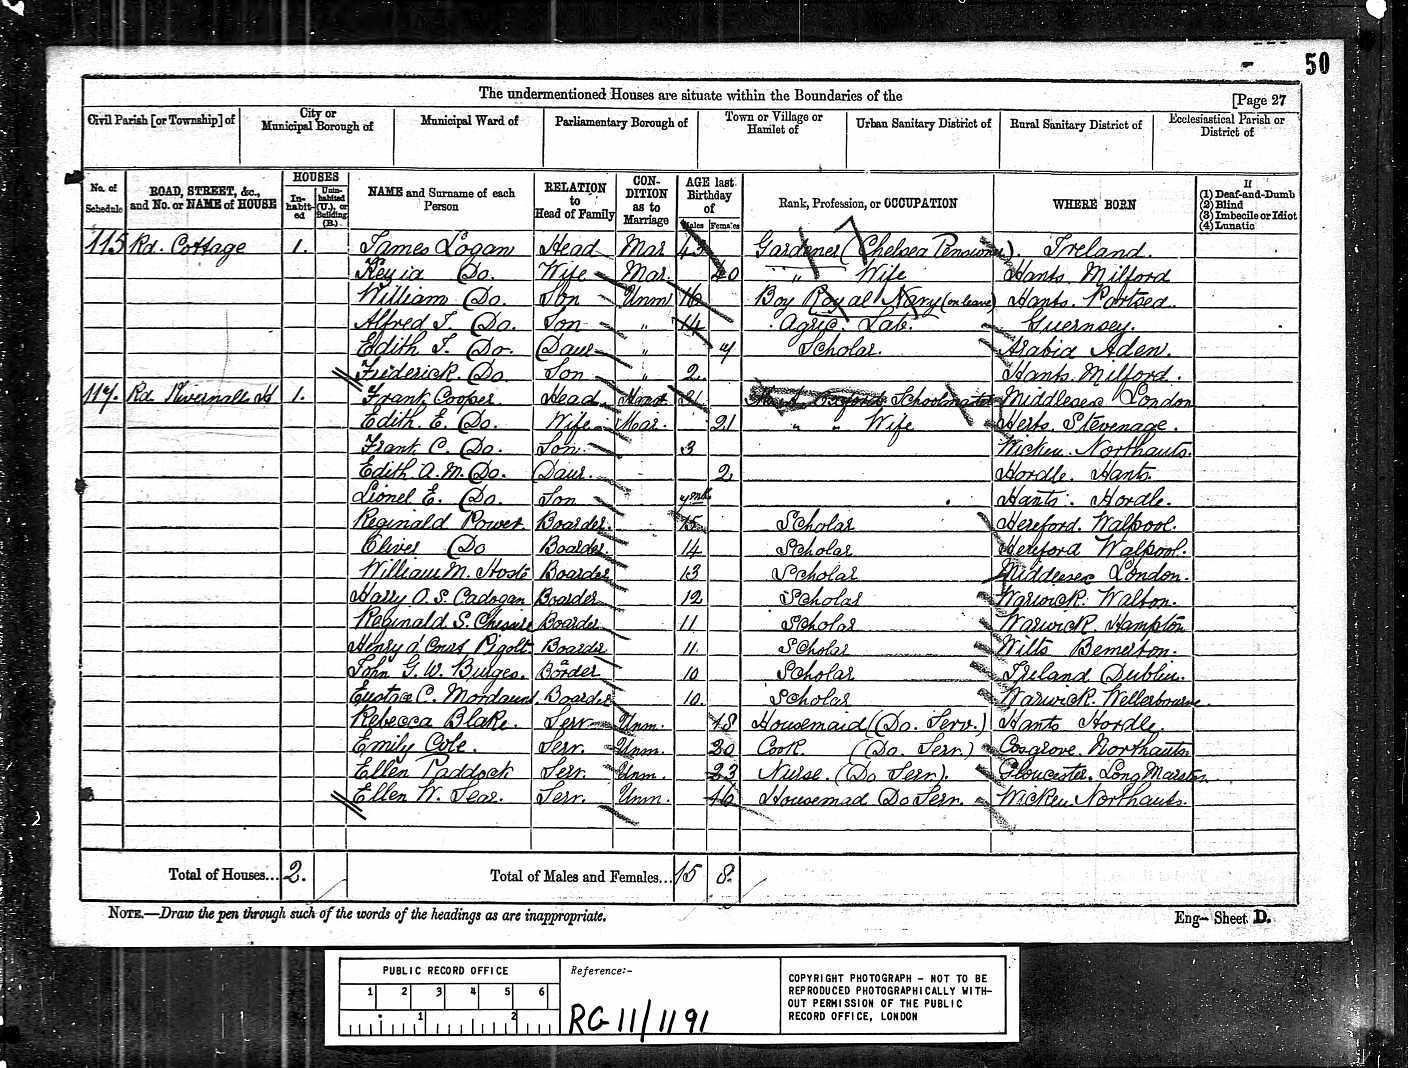 50
The undermentioned Houses are situate within the Boundaries of the
[Page 27
Civil Parish [or Township] of
City or Municipal Borough of
Municipal Ward of
Parliamentary Borough of
Town or Village or Hamlet of
Urban Sanitary District of
Rural Sanitary District of
Ecclesiastical Parish or District of
No. of Schedule
ROAD, STREET, &c., and No. or NAME of HOUSE
HOUSES
In-habit-ed
Unin-habited (U.), or Building (B.)
NAME and Surname of each Person
RELATION to Head of Family
CON-DITION as to Marriage
AGE last Birthday of
Males Females
Rank, Profession, or OCCUPATION
WHERE BORN
If
(1) Deaf-and-Dumb
(2) Blind
(3) Imbecile or Idiot
(4) Lunatic
115 Rd. Cottage 1. James Logan Head Mar 43 Gardener (Chelsea Pensioner) Ireland
Do. Wife Mar. 40 " Wife Hants. Milford
William Do. Son Unm 16 Boy Royal Navy (on leave) Hants. Portsea.
Alfred J. Do. Son " 14 Agric. Lab. Guernsey.
Edith J. Do. Daur " 7 Scholar. Arabia Aden.
Frederick. Do. Son " 2. Hants. Milford.
117. Rd. 1. Frank Cooper Head Mar 31 Schoolmaster Middlesex London
Edith. E. Do. Wife Mar. 21 " " Wife Herts. Stevenage.
Frank C. Do. Son. 3 Wicken Northants.
Edith A. M. Do. Daur. 2 Hordle. Hants.
Lionel E. Do Son 7 mths Hants. Hordle.
Reginald Power Boarder. 15 Scholar Hereford. Walpool.
Do Boarder. 14 Scholar Hereford Walpool.
William M. Hoste Boarder 13 Scholar Middlesex London.
Harry O. S. Cadogan Boarder 12 Scholar Warwick. Walton.
Reginald S. Boarder 11 Scholar Warwick Hampton
Henry A'Court Pigott Boarder 11. Scholar Wilts Bemerton.
John G. W. Burges. Boarder 10 Scholar Ireland Dublin.
Eustace C. Mordaunt. Boarder 10. Scholar Warwick. Wellesbourne
Rebecca Blake. Serv Unm. 18 Housemaid (Do. Serv.) Hants Hordle.
Emily Cole. Serv. Unm. 20 Cook (Do. Serv.) Cosgrove. Northants
Ellen Paddock Serv. Unm. 23 Nurse. (Do Serv). Gloucester. Long Marston
Ellen W. Sear. Serv. Unm. 16 Housemad Do Serv. Wicken Northants.
Total of Houses... 2.
Total of Males and Females... 15 8.
NOTE.—Draw the pen through such of the words of the headings as are inappropriate.
Eng— Sheet D.
PUBLIC RECORD OFFICE
1 2 3 4 5 6
1 2
Reference:-
RG 11/1191
COPYRIGHT PHOTOGRAPH - NOT TO BE
REPRODUCED PHOTOGRAPHICALLY WITH-
OUT PERMISSION OF THE PUBLIC
RECORD OFFICE, LONDON